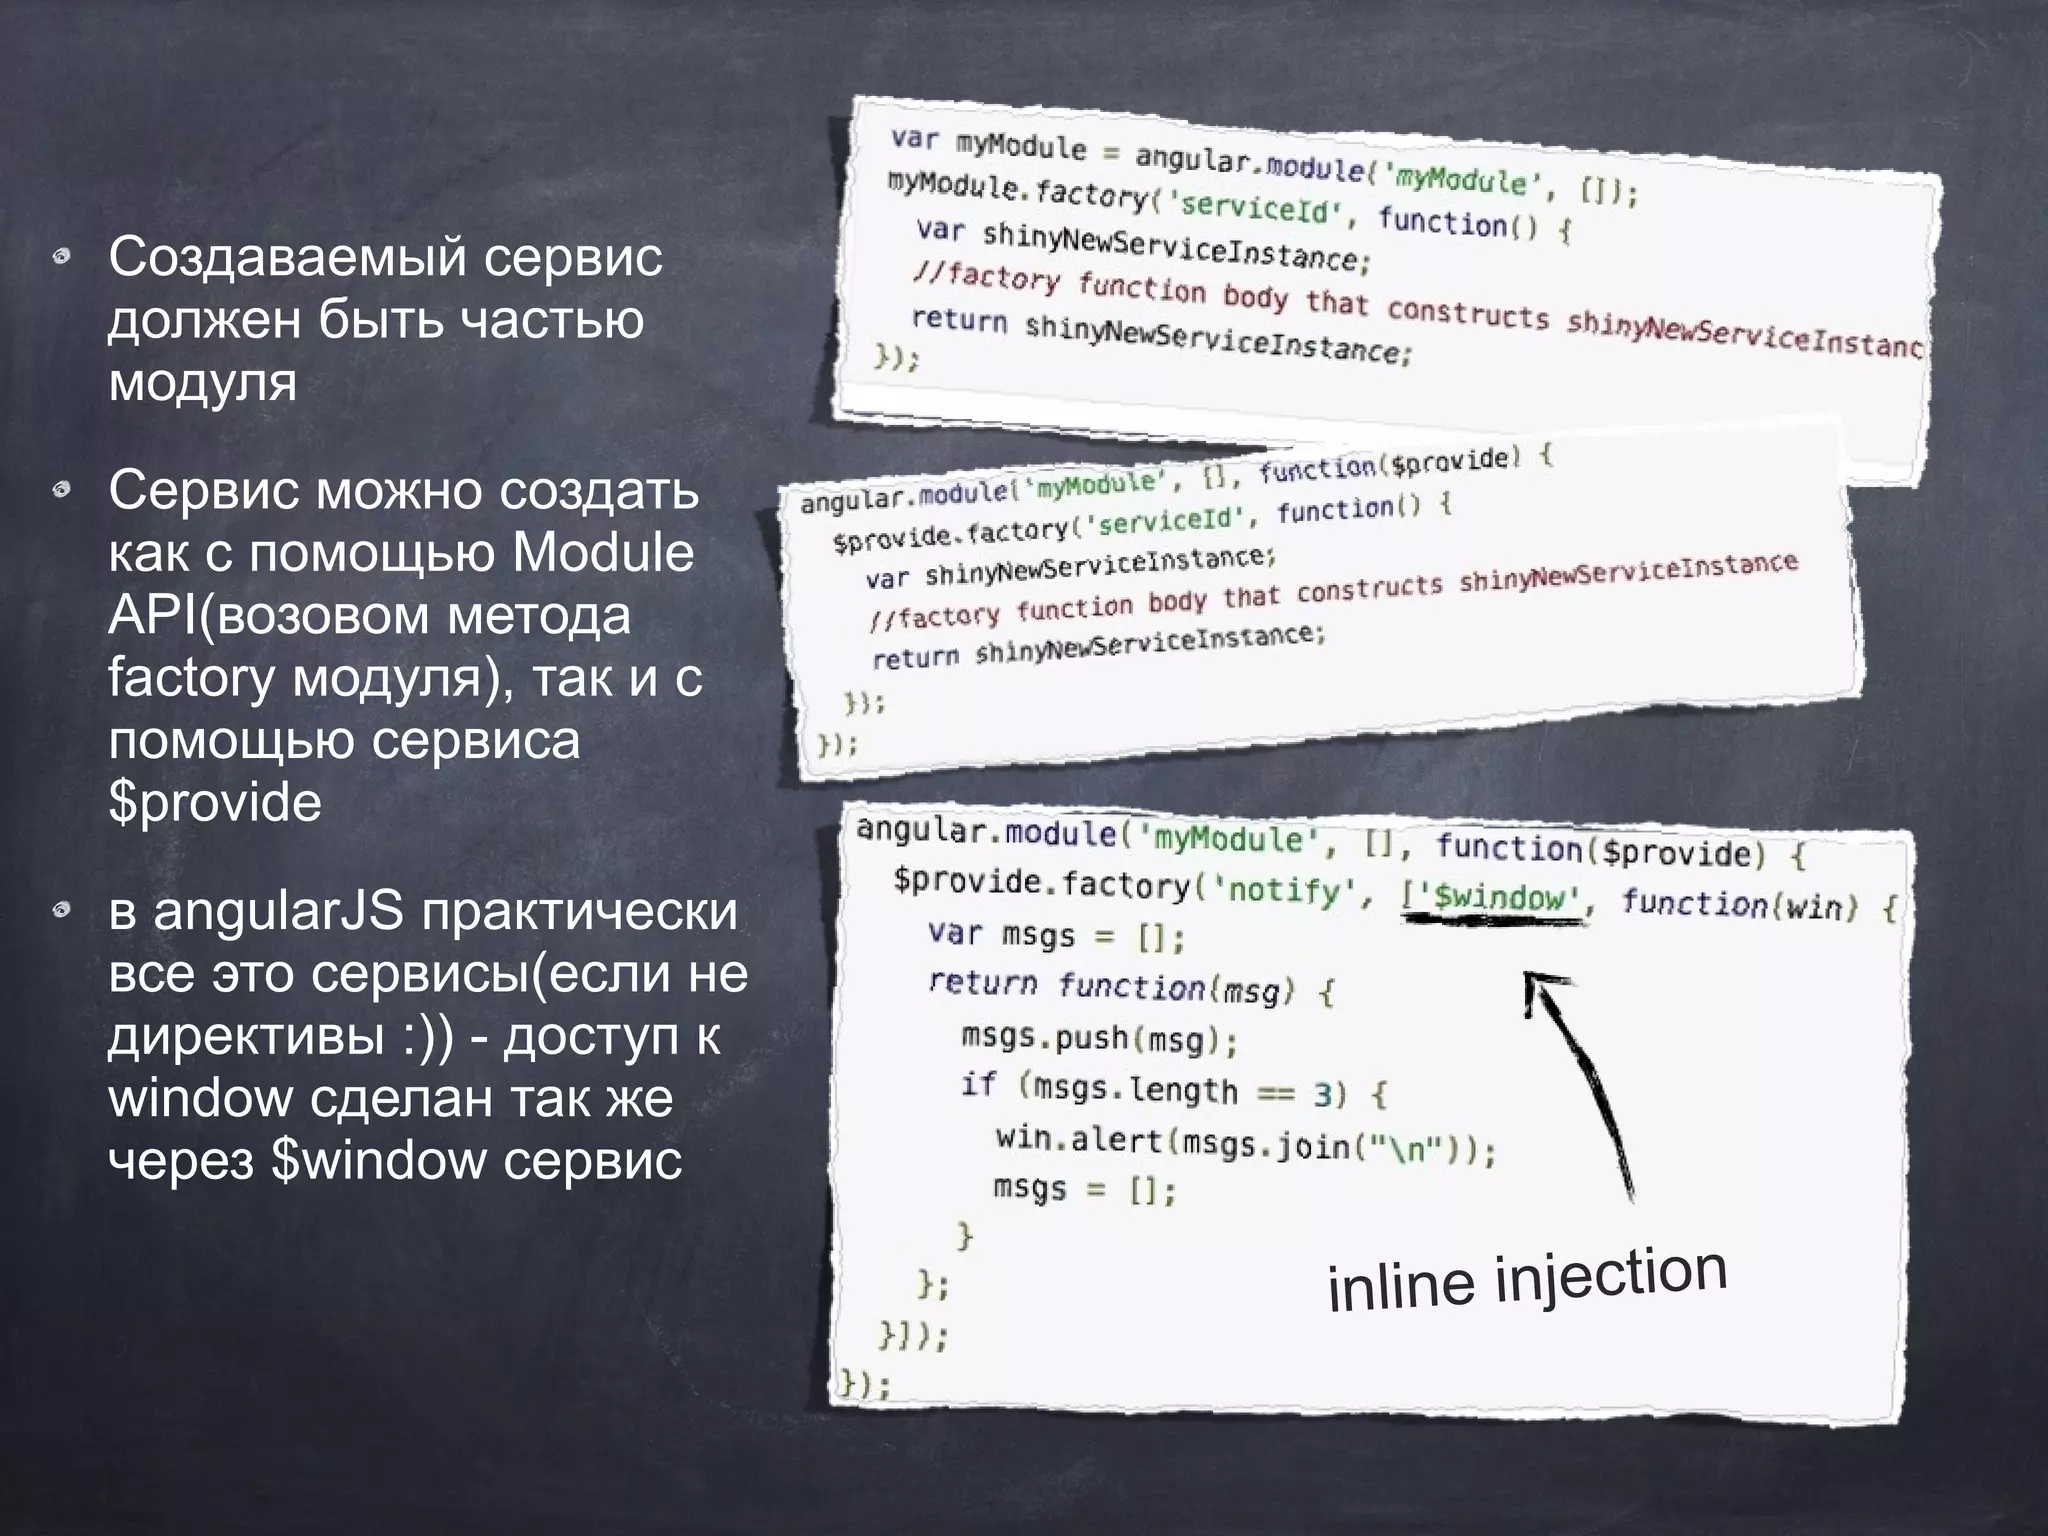 Создаваемый сервис
должен быть частью
модуля
Сервис можно создать
как с помощью Module
API(возовом метода
factory модуля), так и с
помощью сервиса
$provide
в angularJS практически
все это сервисы(если не
директивы :)) - доступ к
window сделан так же
через $window сервис
var myModule = angular.module('myModule', []);
myModule.factory('serviceId', function() {
var shinyNewServiceInstance;
//factory function body that constructs shinyNewServiceInstanc
return shinyNewServiceInstance;
});
angular.module('myModule', [], function($provide) {
$provide.factory('serviceId', function() {
var shinyNewServiceInstance;
//factory function body that constructs shinyNewServiceInstance
return shinyNewServiceInstance;
});
});
angular.module('myModule', [], function($provide) {
$provide.factory('notify', ['$window', function(win) {
var msgs = [];
return function(msg) {
msgs.push(msg);
if (msgs.length == 3) {
win.alert(msgs.join("\n"));
msgs = [];
}
};
}]);
});
inline injection